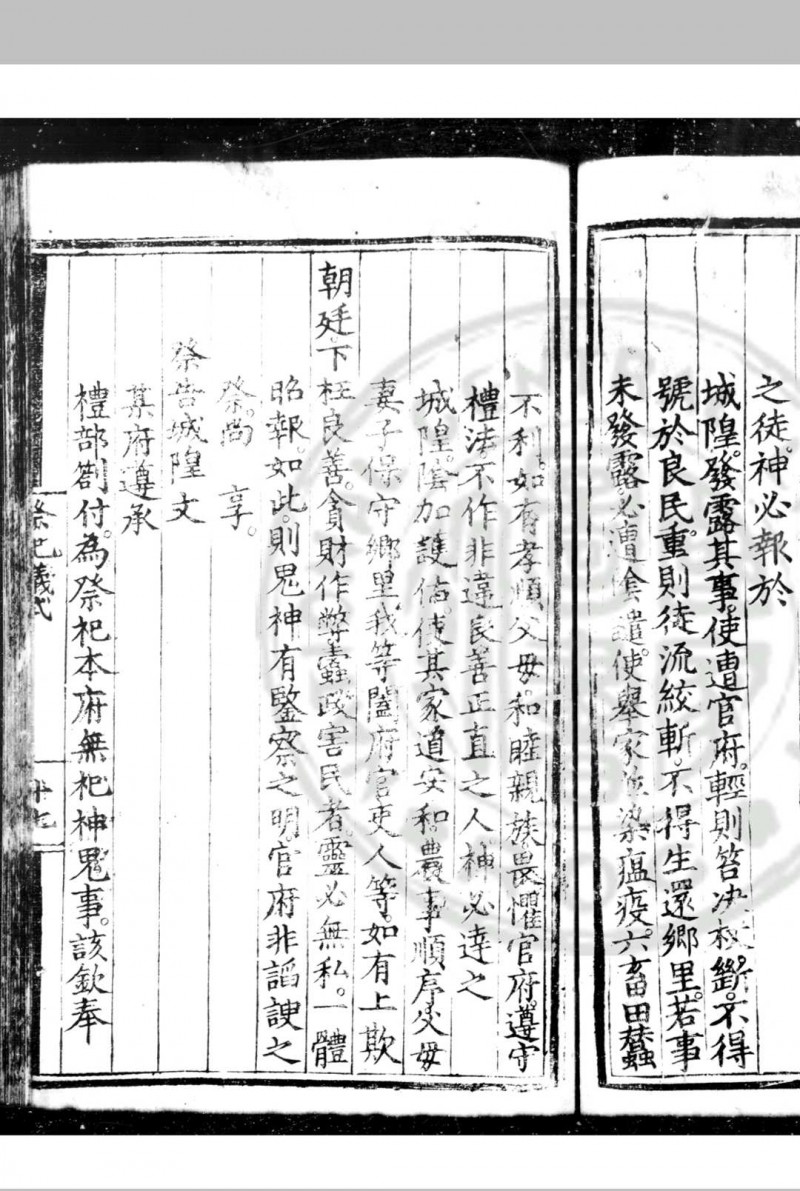 之徒。神必報於
城隍。發露其事。使遭官府。輕則笞決杖斷。不得
號於良民。重則徒流絞斬。不得生還鄉里。若事
未發露。必遭陰譴。使舉家並染瘟疫。六畜田蠶
不利。如有孝順父母。和睦親族。畏懼官府。遵守
禮法。不作非違。良善正直之人。神必達之
城隍。陰加護佑。使其家道安和。農事順序。父母
妻子。保守鄉里。我等闔府官吏人等。如有上欺
朝廷。下枉良善。貪財作弊。蠹政害民者。靈必無私。一體
昭報。如此。則鬼神有鑒察之明。官府非謟諛之
祭。尚 享。
祭告城隍文
某府遵承
禮部劄付。為祭祀本府無祀神鬼事。該欽奉
祭祀儀式
十七